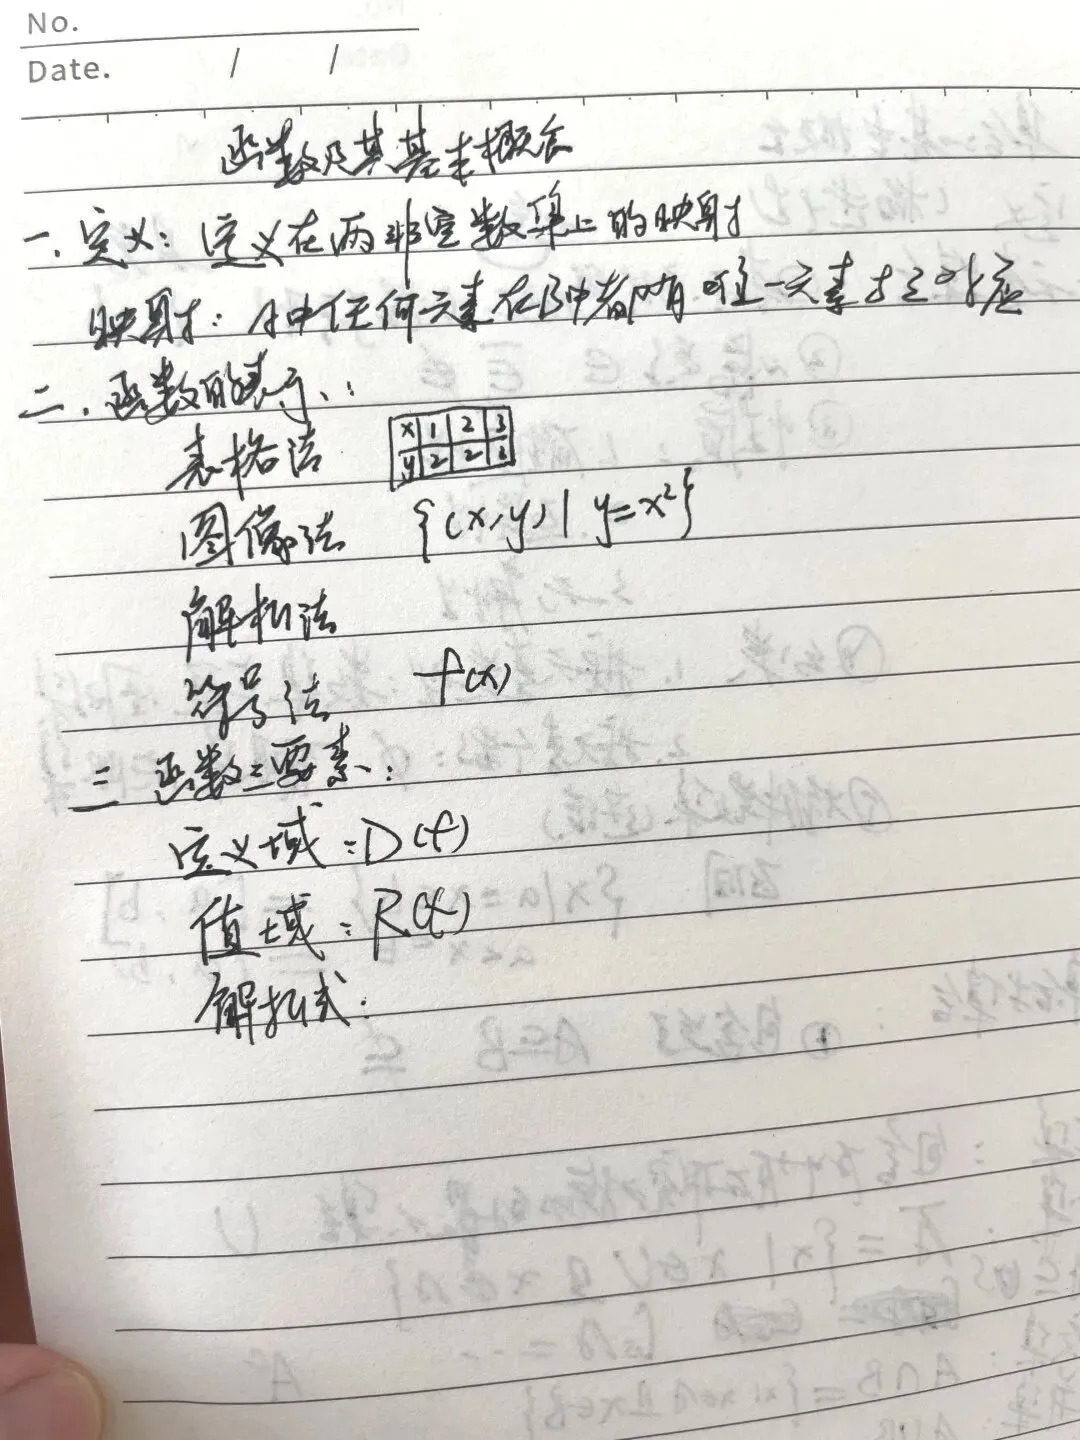 No.
Date. / /
函数及其基本概念
一.定义:定义在两非空数集上的映射
映射:A中任何元素在B中都有唯一元素与之对应
二.函数的表示:
表格法 x 1 2 3
y 2 2 2
图像法 {(x,y)| y=x²}
解析法
符号法 f(x)
三 函数三要素:
定义域:D(f)
值域:R(f)
解析式: